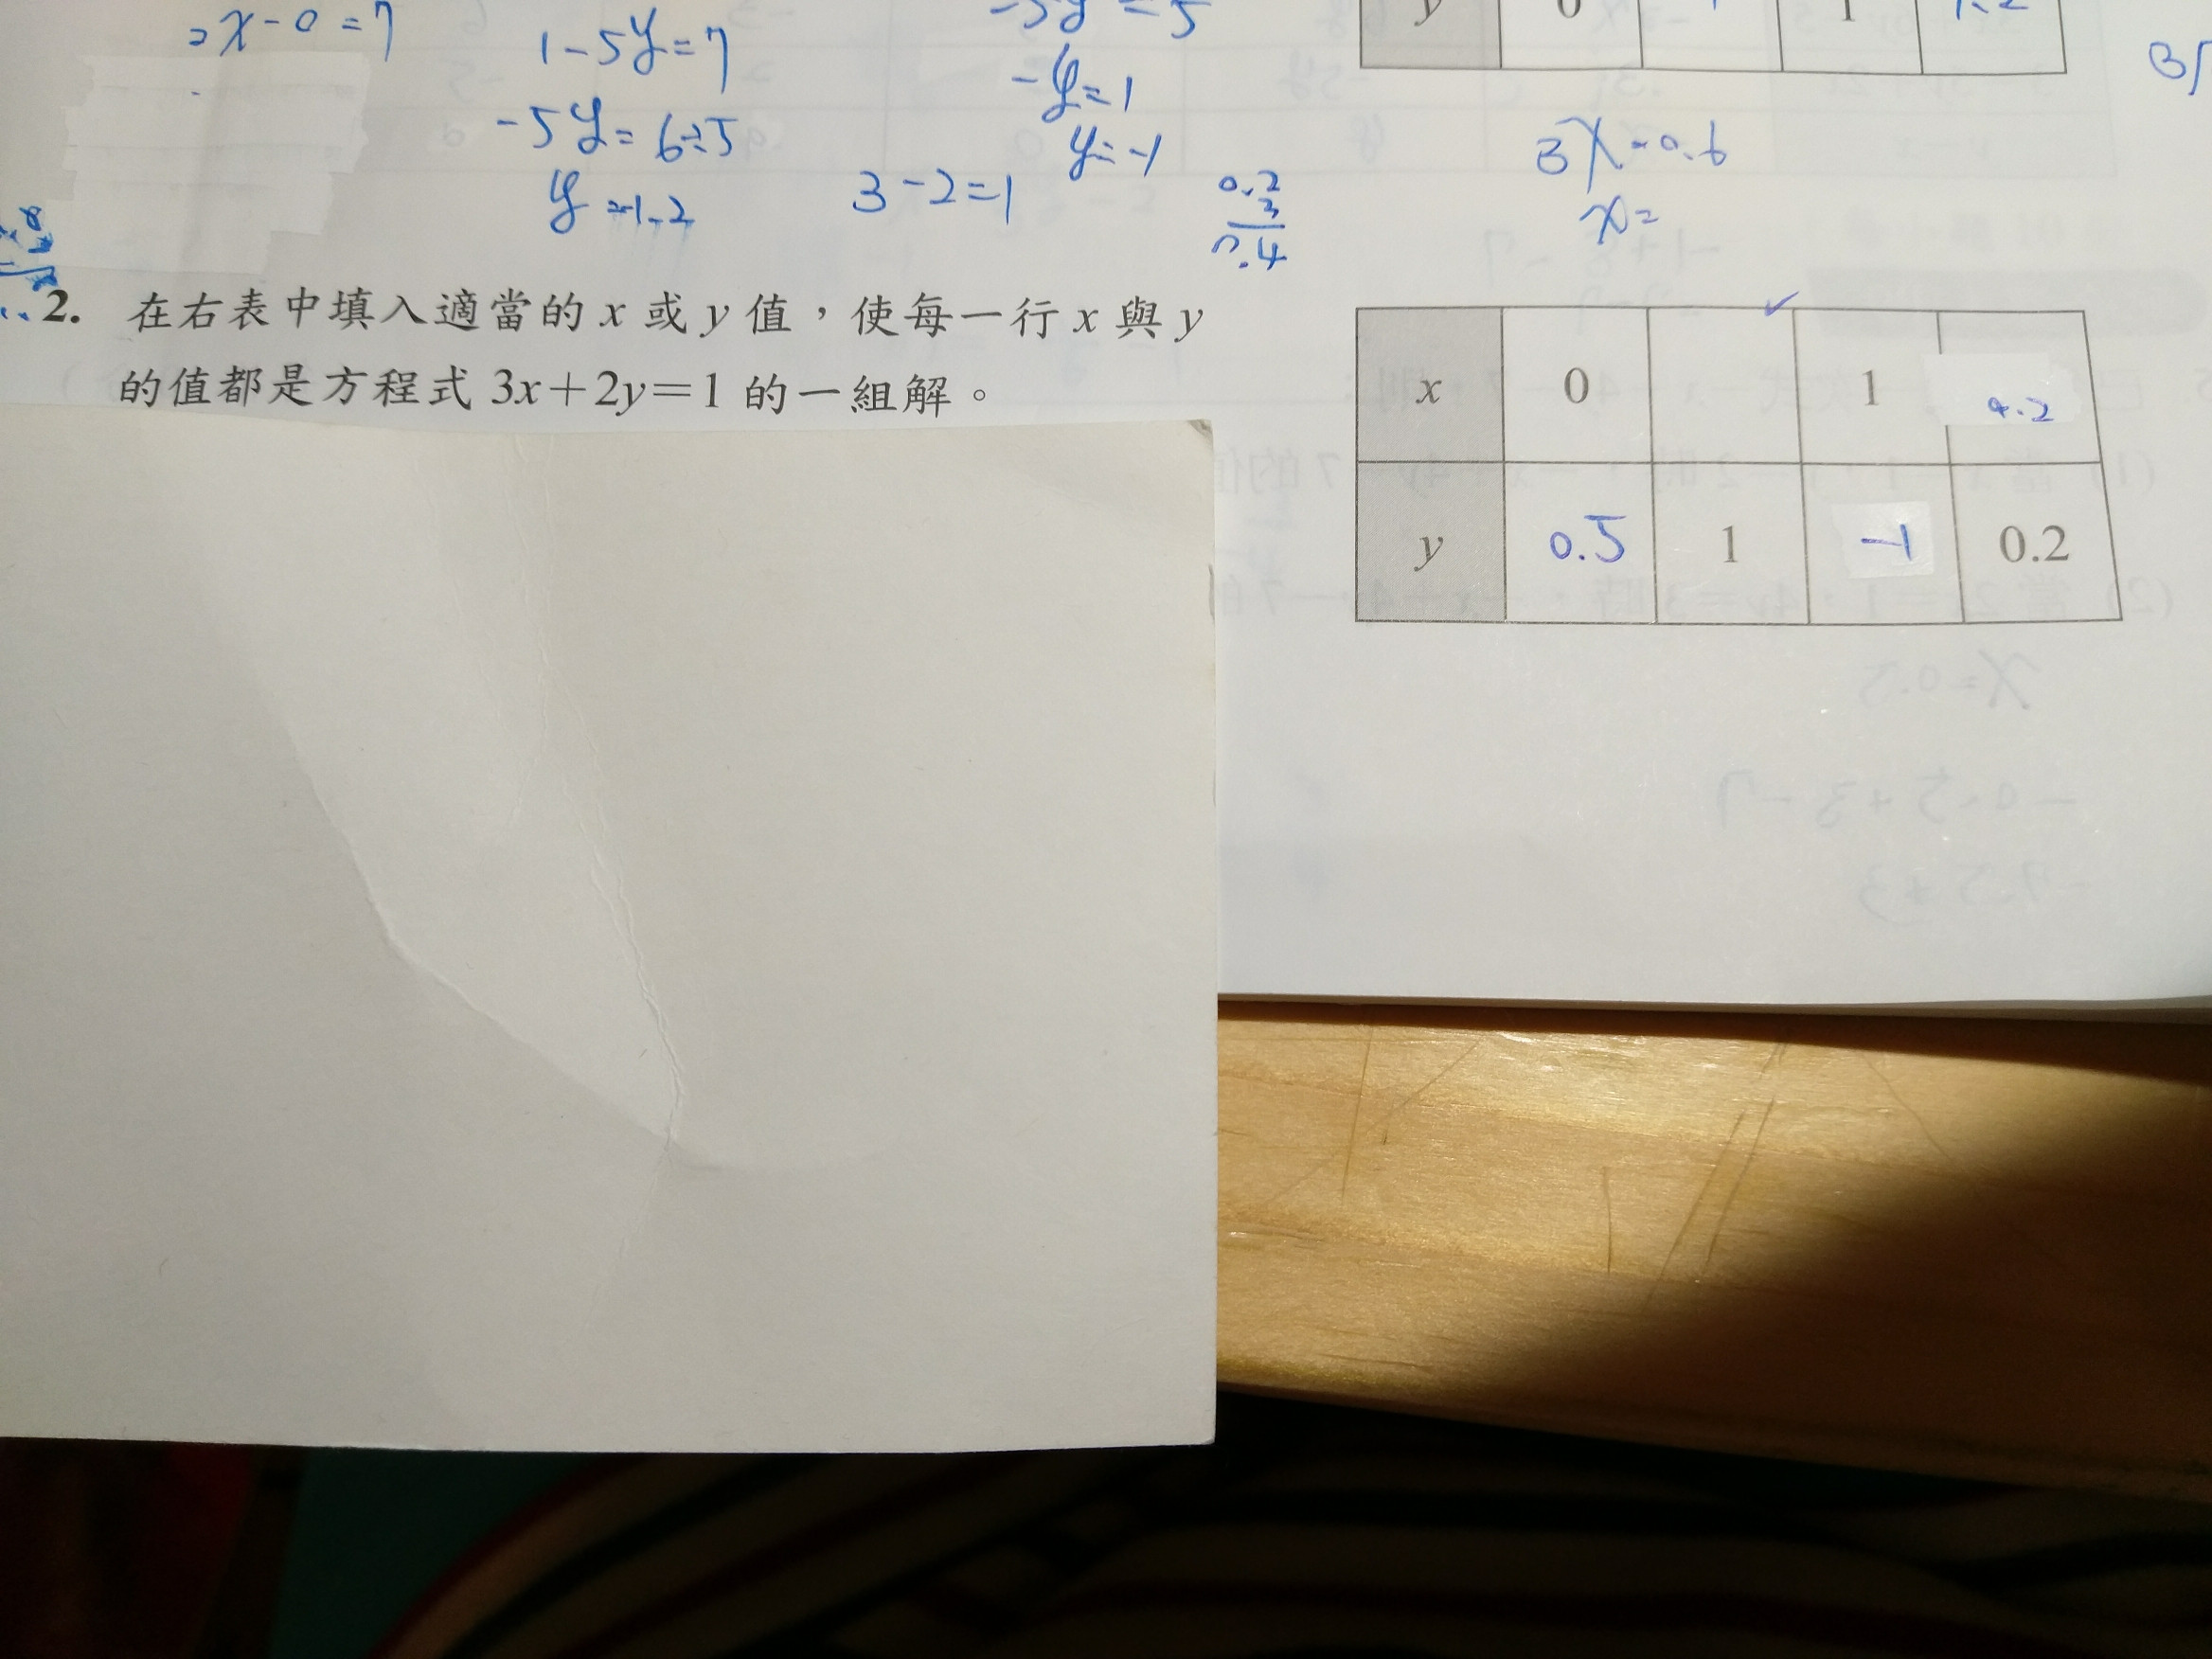 x-0=7
1-5y=7
-5y=5
y 0 1 1.2
-y=1
-5y=6÷5
y=-1
3x=0.6
y=-1.2
3-2=1
0.2
3
x=
2. 在右表中填入適當的 x 或 y 值，使每一行 x 與 y
的值都是方程式 3x+2y=1 的一組解。
x 0 1 0.2
y 0.5 1 -1 0.2